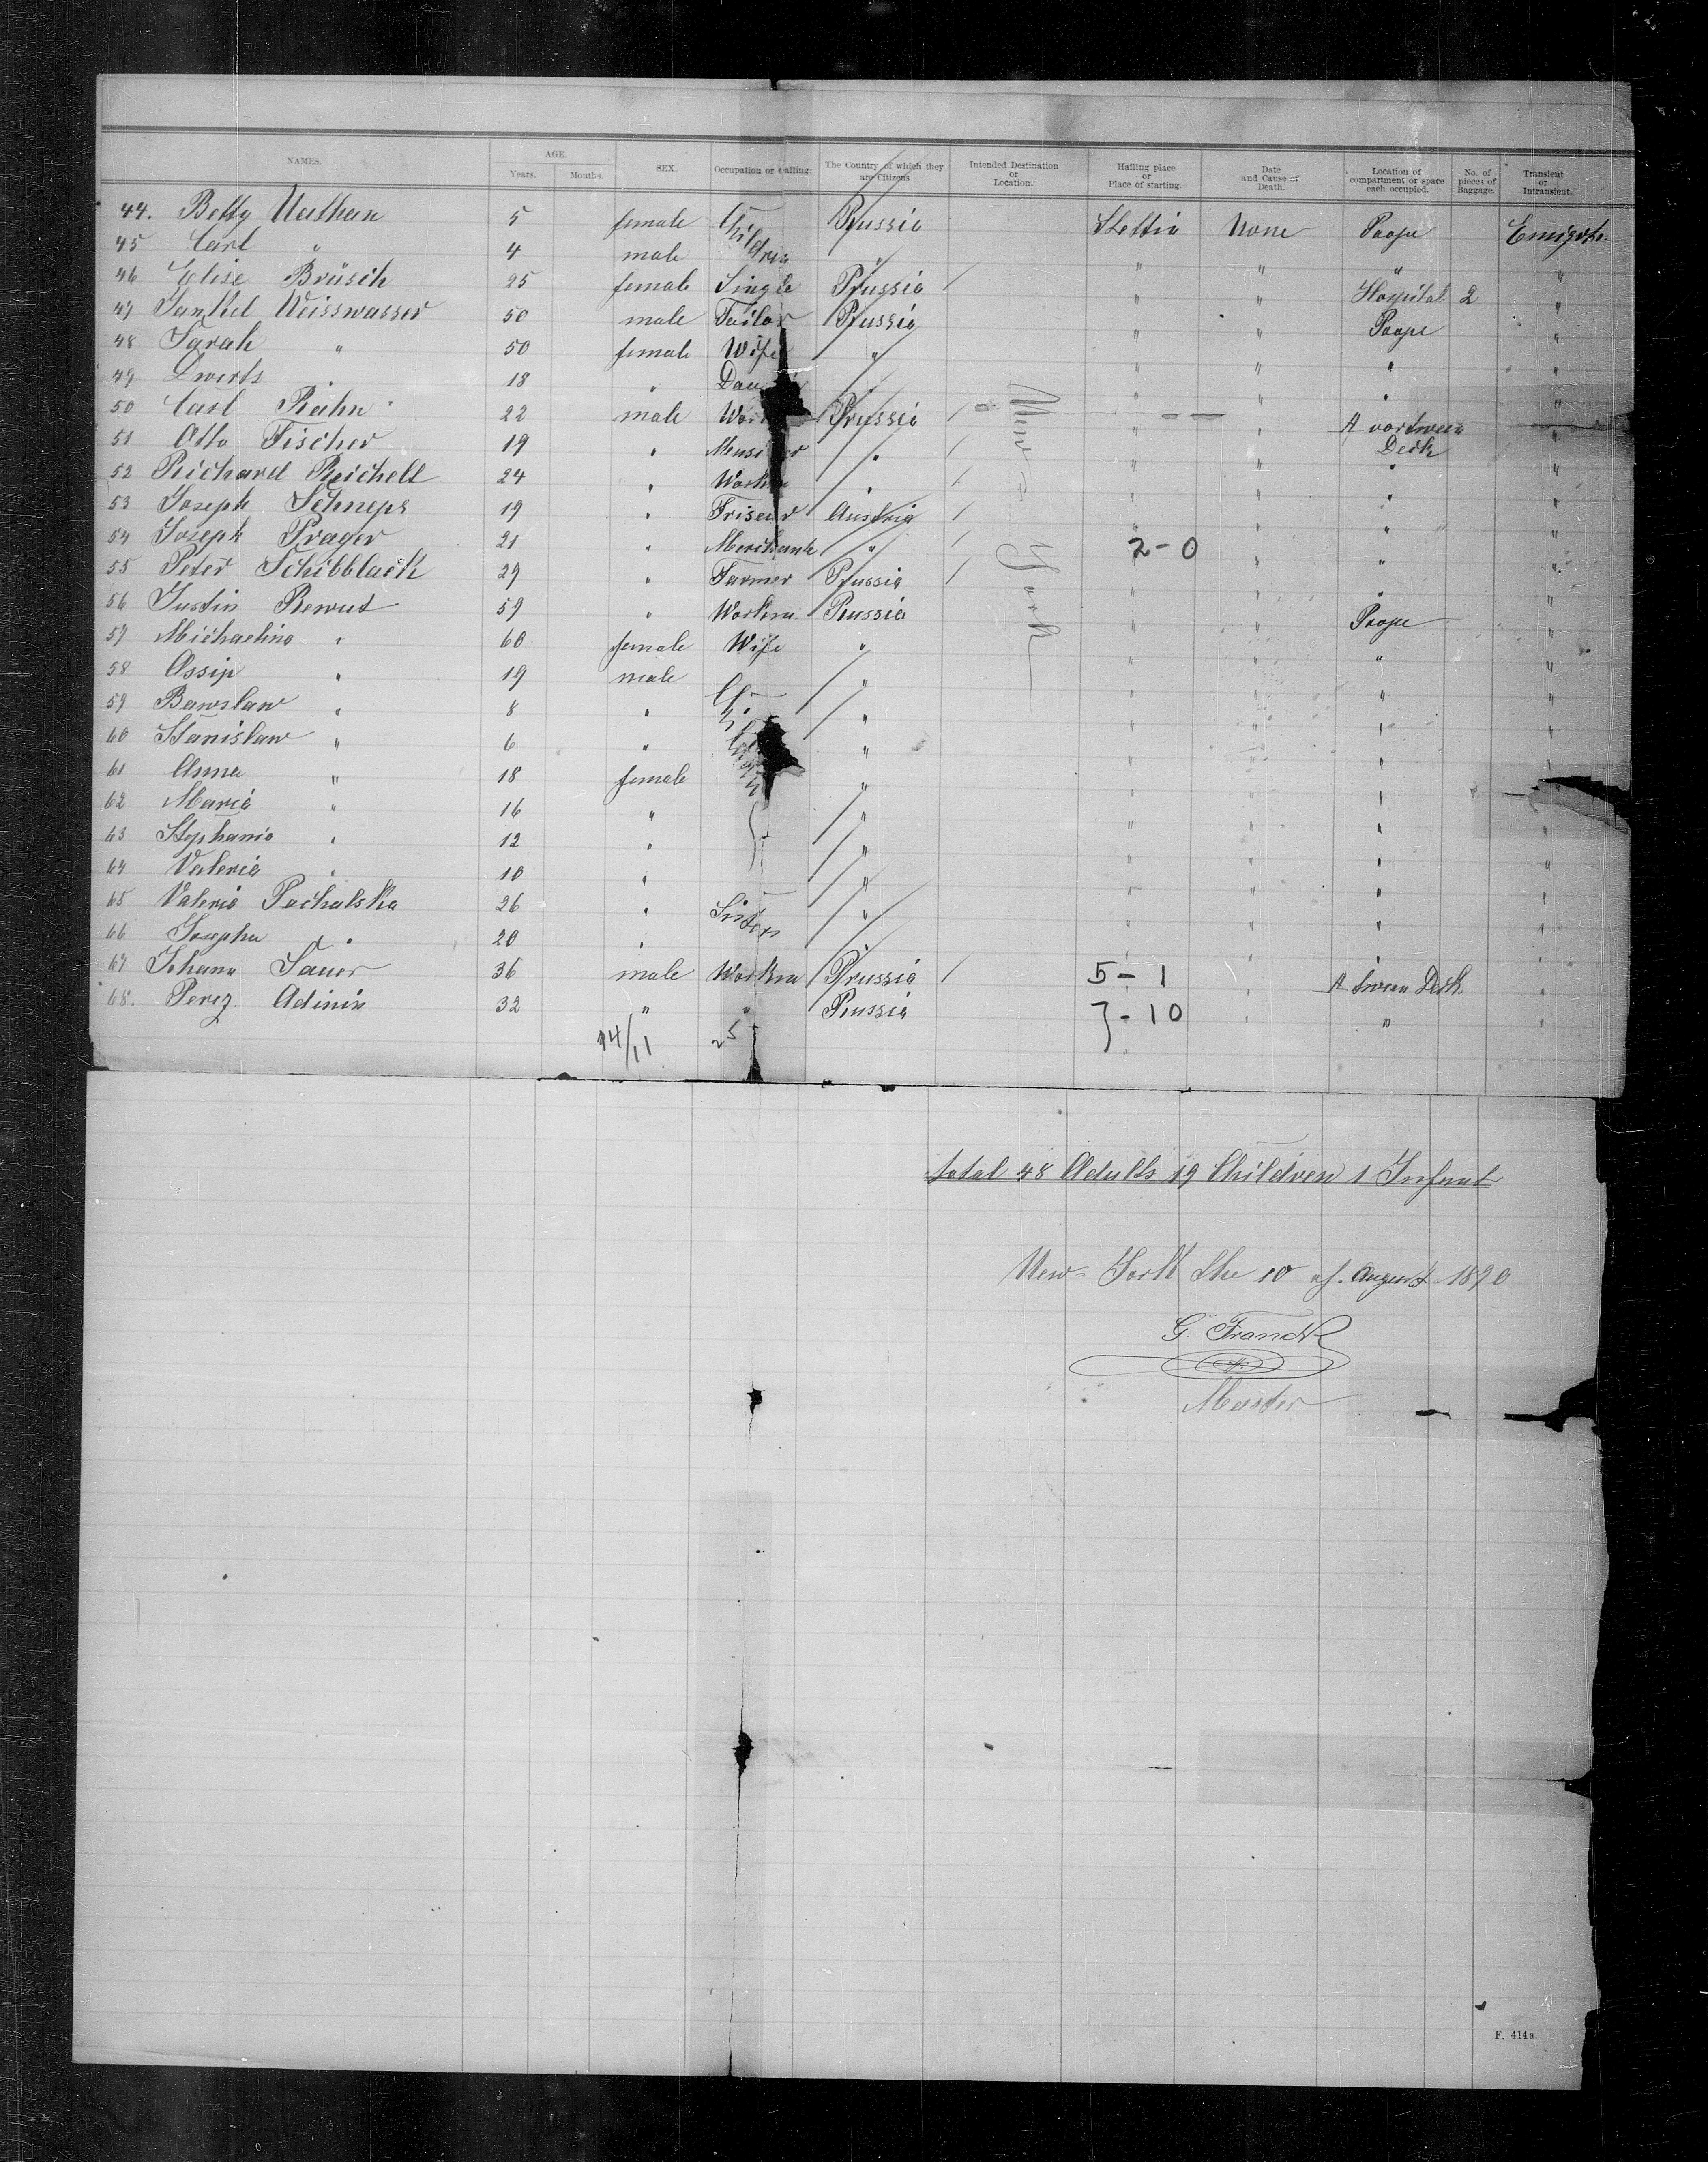 NAMES. AGE. Years. Months. SEX. Occupation or calling The Country of which they are Citizens Intended Destination or Location. Hailing place or Place of starting. Date and Cause of Death. Location of compartment or space each occupied. No. of pieces of Baggage. Transient or Intransient.
44. Betty Nathan 5 female Children Russia Stettin None Poope
45 Carl " 4 male " " " " "
46 Elise Brüsch 25 female Single Prussia / " " Hospital 2 "
47 Jankel Weisswasser 50 male Tailor Russia " " Poope "
48 Sarah " 50 female Wife " " " " "
49 Dwerts " 18 " " " " " "
50 Carl Rahn 22 male Prussia / " " A vortween "
51 Otto Fischer 19 " " / " " Deck "
52 Richard Reichelt 24 " " / " " " "
53 Joseph Schneps 19 " Friseur Austria / " " " "
54 Joseph Prager 21 " Merchant " / " " " "
2-0
55 Peter Schibblack 29 " Farmer Prussia / " " " "
56 Justin Rewut 59 " Workm. Russia " " Poope "
57 Michaelina " 60 female Wife " " " " "
58 Ossip " 19 male " " " " "
59 " 8 " Children " " " " "
60 Stanislaw " 6 " " " " " "
61 Anna " 18 female " " " " "
62 Maria " 16 " " " " " "
63 Stephania " 12 " " " " " "
64 Valeria " 10 " " " " " "
65 Valeria Pachalska 26 " Sisters " " " " "
66 Josepha " 20 " " " " " "
67 Johann Sauer 36 male Workm Prussia / 5-1 " "
68. Perez Adinin 32 " " Russia 7-10 " " "
New York
14/11 25
total 48 Adults 19 Children 1 Infant
New-York the 10 of. August 1890
G. Franck
Master
F. 414a.